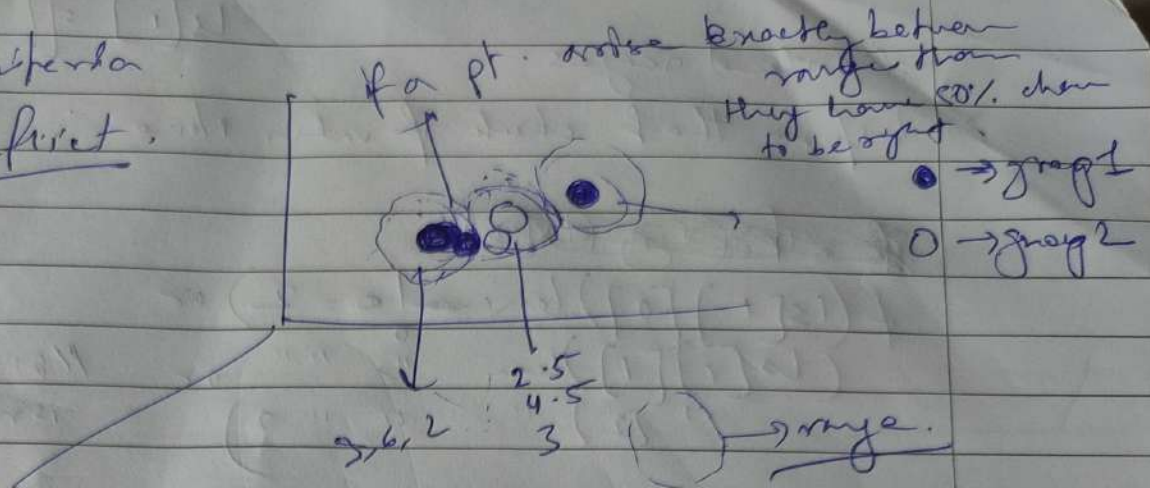 if a pt. arise Exactly between
range then
they have 50% chan
to be right.
first.
→ group 1
→ group 2
2.5
4.5
3
6, 2
→ range.